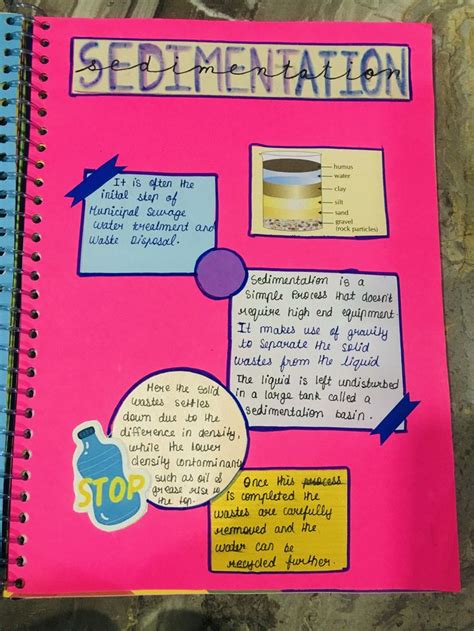 SEDIMENTATION
sedimentation
It is often the
inital step of
Municipal Sewage
water treatment and
Waste Disposal.
humus
water
clay
silt
sand
gravel
(rock particles)
Sedimentation is a
Simple Process that doesn't
require high end equipment.
It makes use of gravity
to Separate the solid
wastes from the liquid
The liquid is left undisturbed
in a large tank called a
sedimentation basin.
Here the solid
wastes settles
down due to the
difference in density,
while the lower
density contaminants
such as oil of
grease rise to
the top.
STOP
Once this process
is completed the
wastes are carefully
removed and the
water can be
recycled further.